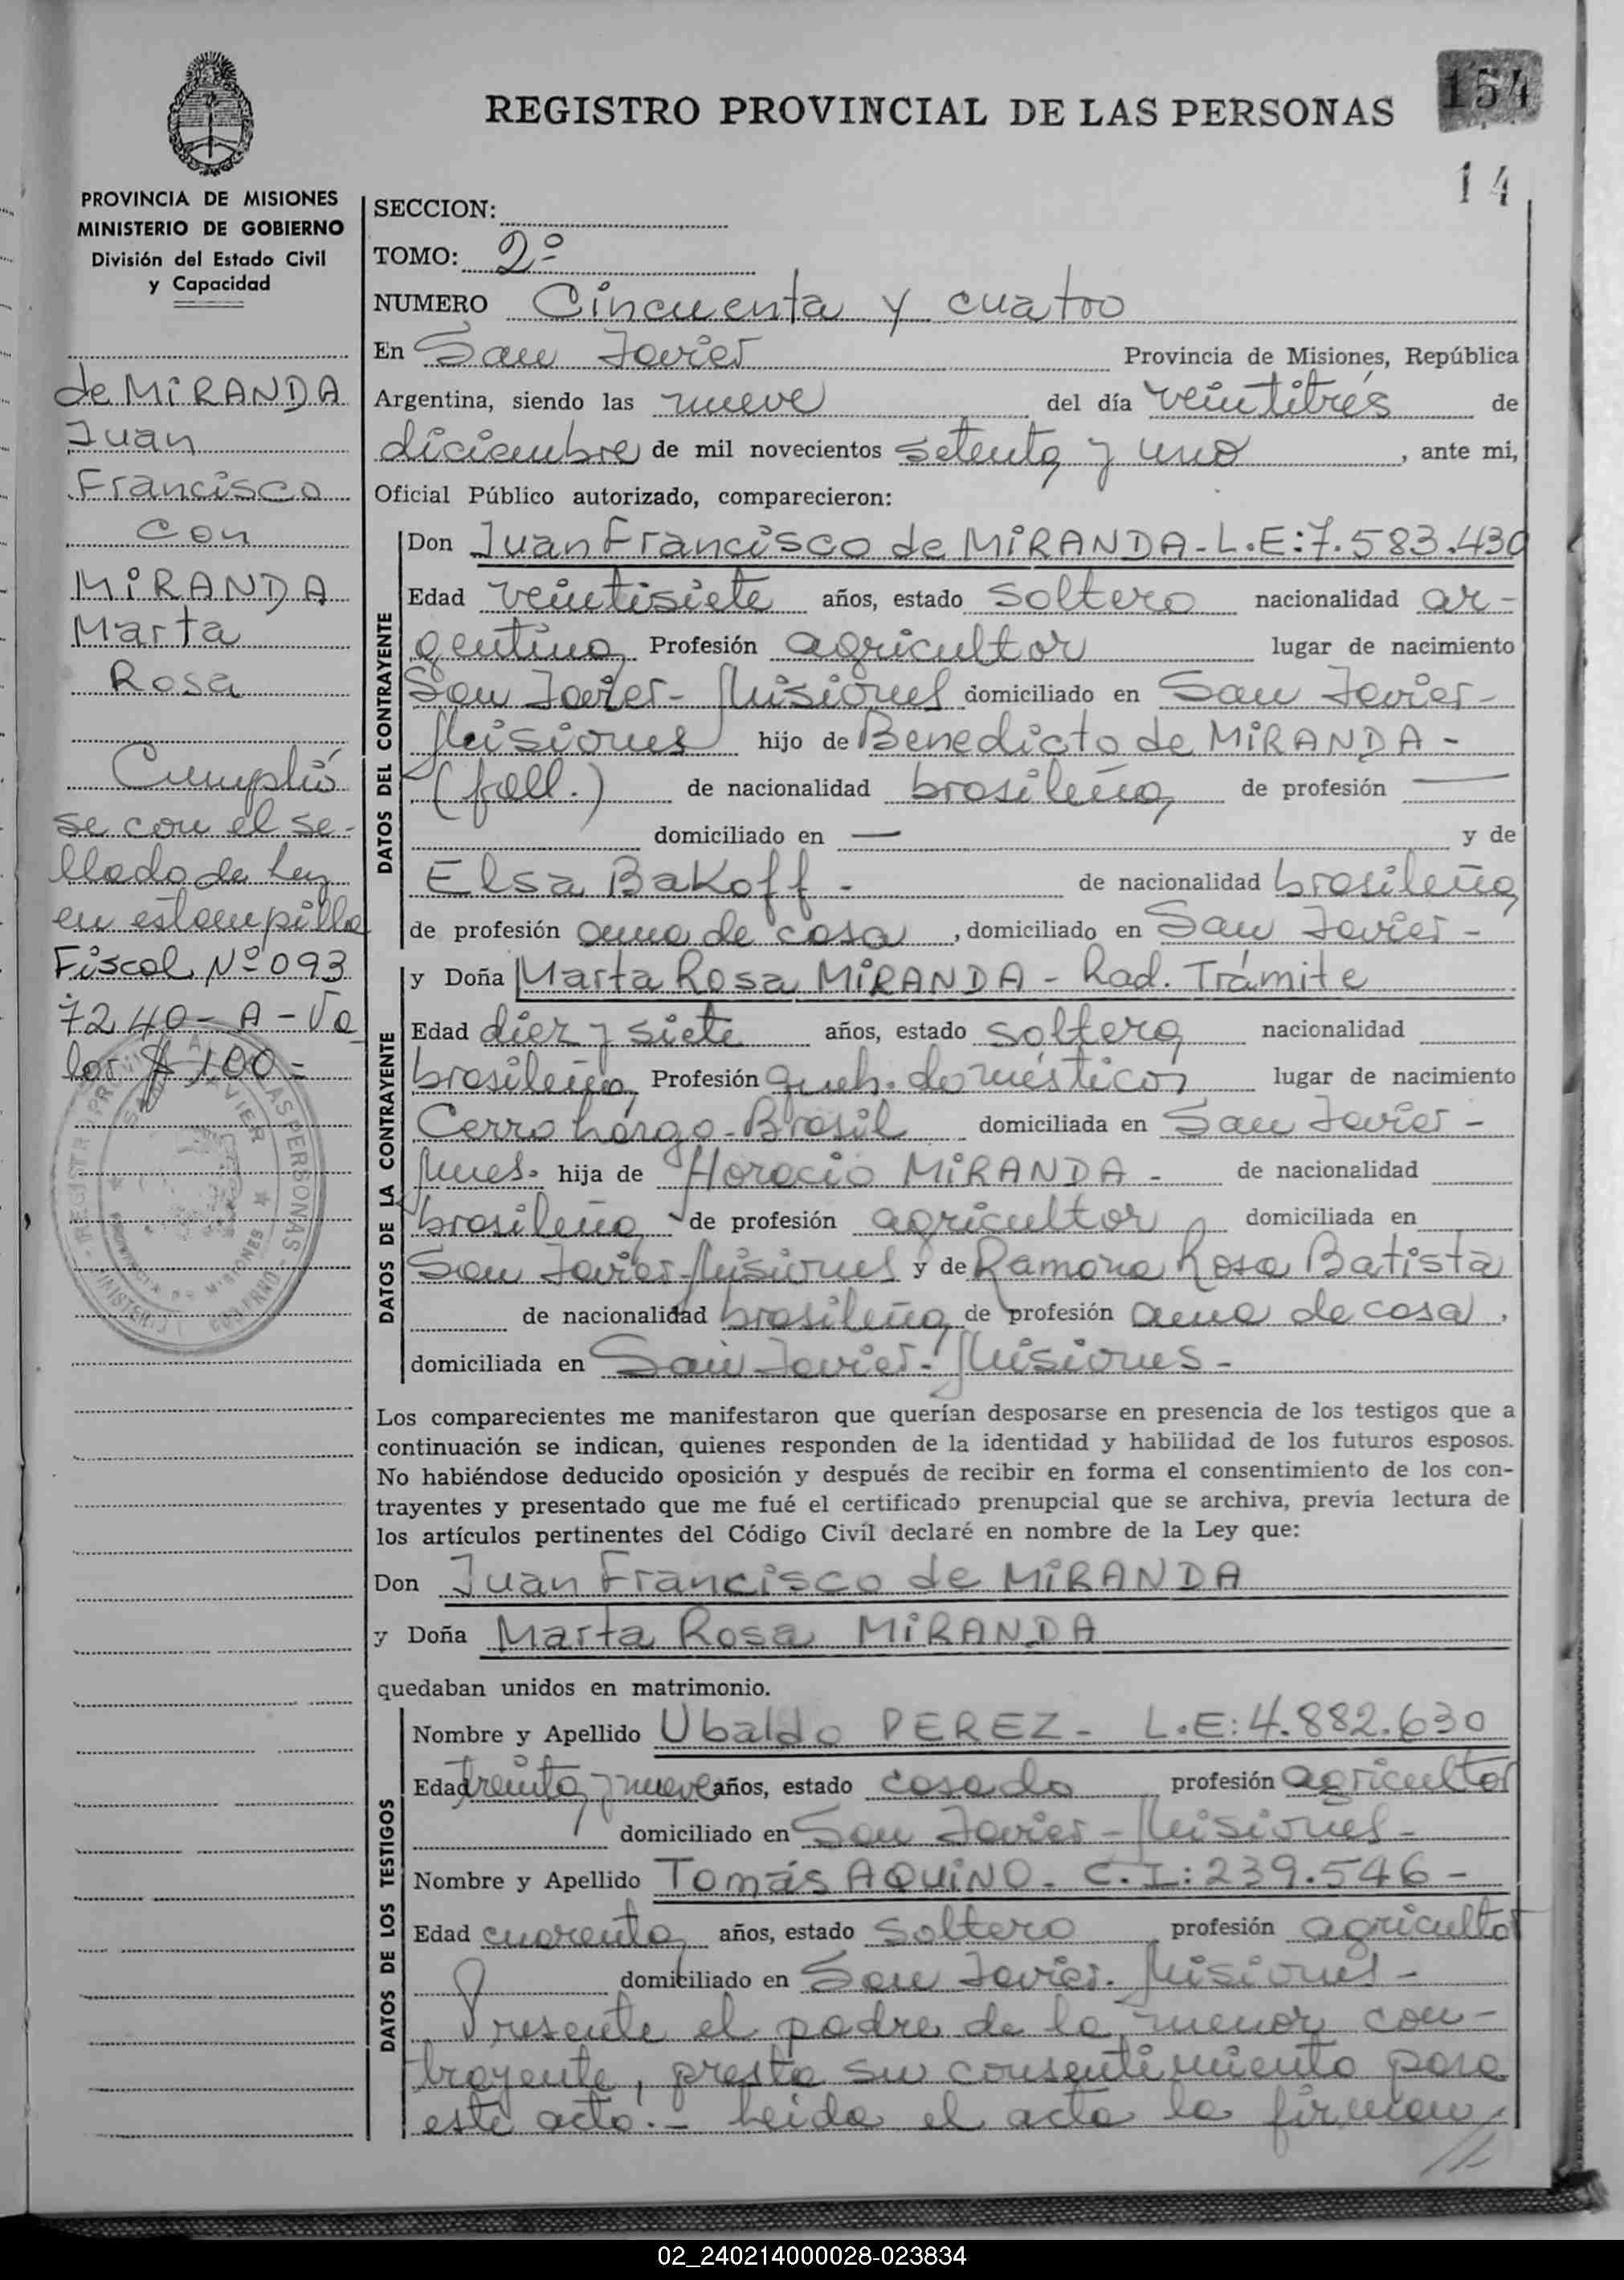 154
REGISTRO PROVINCIAL DE LAS PERSONAS
14
PROVINCIA DE MISIONES
MINISTERIO DE GOBIERNO
División del Estado Civil
y Capacidad
de MiRANDA
Juan
Francisco
con
MiRANDA
Marta
Rosa
Cumplió
se con el se-
llado de Ley
en estampilla
Fiscal Nº 093
7240-A-Va
lor $ 100-
REGISTRO PROVINCIAL DE LAS PERSONAS
SAN JAVIER
PROVINCIA DE MISIONES
MINISTERIO GOBIERNO
SECCION:
TOMO: 2º
NUMERO Cincuenta y cuatro
En San Javier Provincia de Misiones, República
Argentina, siendo las nueve del día veintitrés de
diciembre de mil novecientos setenta y uno, ante mi,
Oficial Público autorizado, comparecieron:
DATOS DEL CONTRAYENTE
Don Juan Francisco de MiRANDA - L.E: 7.583.430
Edad veintisiete años, estado soltero nacionalidad ar-
gentina Profesión agricultor lugar de nacimiento
San Javier - Misiones domiciliado en San Javier -
Misiones hijo de Benedicto de MiRANDA -
(fall.) de nacionalidad brasileña de profesión —
domiciliado en — y de
Elsa Bakoff - de nacionalidad brasileña
de profesión ama de casa, domiciliado en San Javier -
DATOS DE LA CONTRAYENTE
y Doña Marta Rosa MiRANDA - Rad. Trámite
Edad diez y siete años, estado soltera nacionalidad
brasileña Profesión queh. domésticos lugar de nacimiento
Cerro Largo - Brasil domiciliada en San Javier -
Mnes. hija de Horacio MiRANDA - de nacionalidad
brasileña de profesión agricultor domiciliada en
San Javier - Misiones y de Ramona Rosa Batista
de nacionalidad brasileña de profesión ama de casa,
domiciliada en San Javier - Misiones -
Los comparecientes me manifestaron que querían desposarse en presencia de los testigos que a
continuación se indican, quienes responden de la identidad y habilidad de los futuros esposos.
No habiéndose deducido oposición y después de recibir en forma el consentimiento de los con-
trayentes y presentado que me fué el certificado prenupcial que se archiva, previa lectura de
los artículos pertinentes del Código Civil declaré en nombre de la Ley que:
Don Juan Francisco de MiRANDA
y Doña Marta Rosa MiRANDA
quedaban unidos en matrimonio.
DATOS DE LOS TESTIGOS
Nombre y Apellido Ubaldo PEREZ - L.E: 4.882.630
Edad treinta y nueve años, estado casado profesión agricultor
domiciliado en San Javier - Misiones -
Nombre y Apellido Tomás AQUiNO - C.I: 239.546 -
Edad cuarenta años, estado soltero profesión agricultor
domiciliado en San Javier - Misiones -
Presente el padre de la menor con-
trayente, presta su consentimiento para
este acto.- Leida el acta la firman
//
02_240214000028-023834